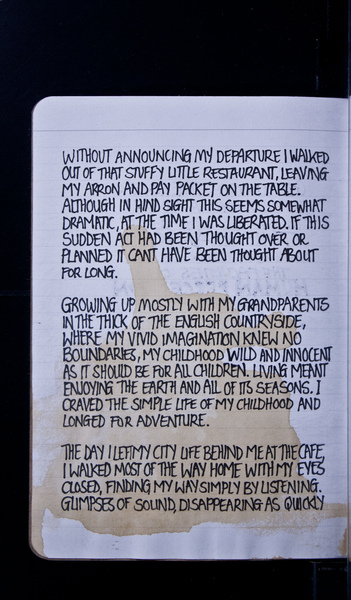 WITHOUT ANNOUNCING MY DEPARTURE I WALKED
OUT OF THAT STUFFY LITTLE RESTAURANT, LEAVING
MY ARRON AND PAY PACKET ON THE TABLE.
ALTHOUGH IN HIND SIGHT THIS SEEMS SOMEWHAT
DRAMATIC, AT THE TIME I WAS LIBERATED. IF THIS
SUDDEN ACT HAD BEEN THOUGHT OVER OR
PLANNED IT CANT HAVE BEEN THOUGHT ABOUT
FOR LONG.
GROWING UP MOSTLY WITH MY GRANDPARENTS
IN THE THICK OF THE ENGLISH COUNTRYSIDE,
WHERE MY VIVID IMAGINATION KNEW NO
BOUNDARIES, MY CHILDHOOD WILD AND INNOCENT
AS IT SHOULD BE FOR ALL CHILDREN. LIVING MEANT
ENJOYING THE EARTH AND ALL OF ITS SEASONS. I
CRAVED THE SIMPLE LIFE OF MY CHILDHOOD AND
LONGED FOR ADVENTURE.
THE DAY I LEFT MY CITY LIFE BEHIND ME AT THE CAFE,
I WALKED MOST OF THE WAY HOME WITH MY EYES
CLOSED, FINDING MY WAY SIMPLY BY LISTENING.
GLIMPSES OF SOUND, DISAPPEARING AS QUICKLY